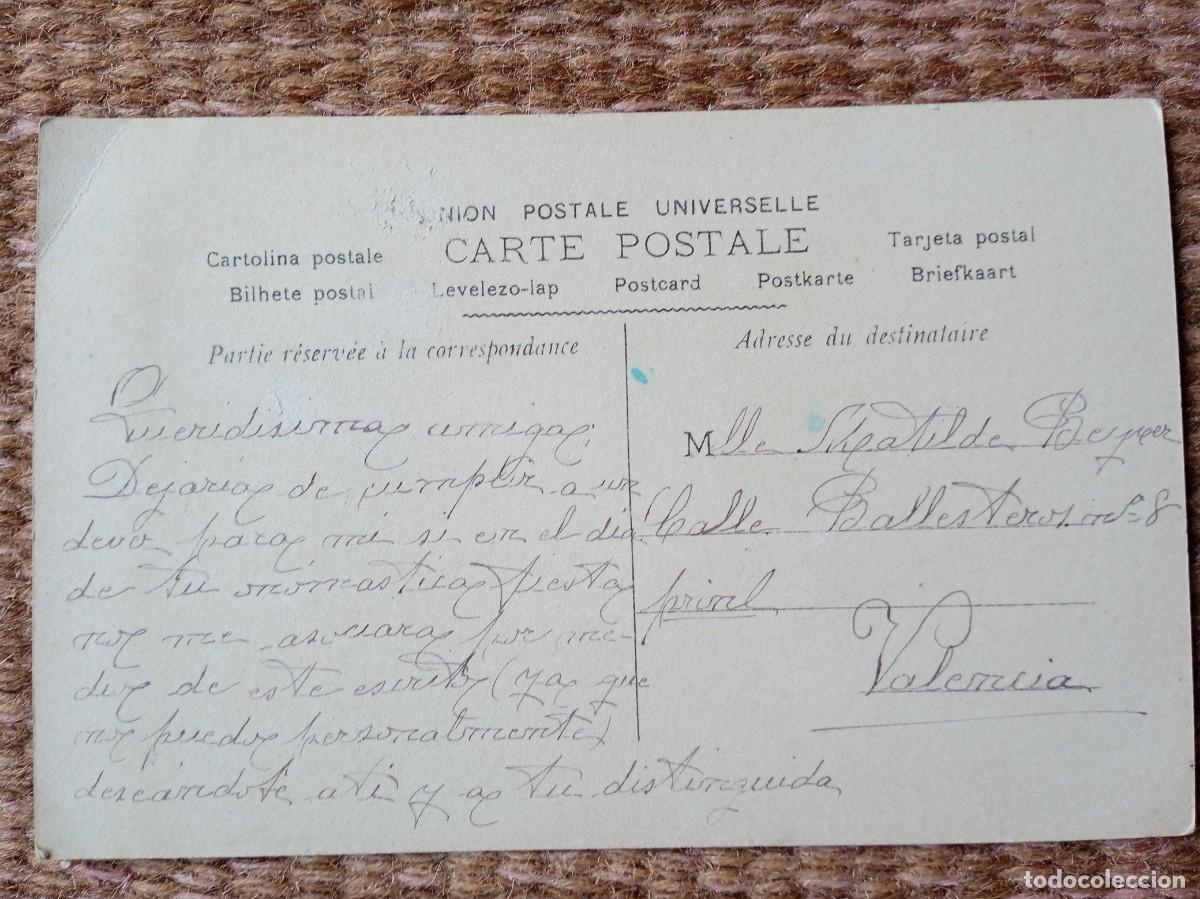 UNION POSTALE UNIVERSELLE
CARTE POSTALE
Cartolina postale
Tarjeta postal
Bilhete postal
Levelezo-lap
Postcard
Postkarte
Briefkaart
Partie réservée à la correspondance
Queridisima amiga:
Dejaria de cumplir a un
devo para mi si en el dia
de tu onomastica fiesta
no me asociara por me-
dio de este escrito (ya que
no puedo personalmente)
deseándote a ti y a tu distinguida
Adresse du destinataire
Mlle Matilde
Calle Ballesteros nº 8
prinl
Valencia
todocoleccion